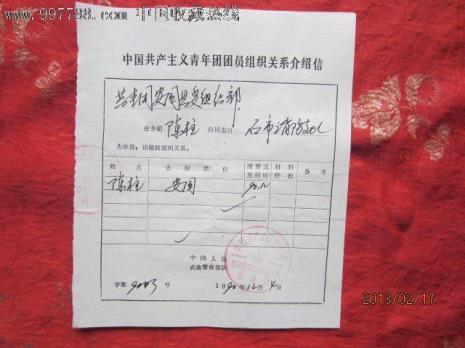 www.997788.com 中国收藏热线
中国共产主义青年团团员组织关系介绍信
共青团安国县委组织部
兹介绍 陈柱 位同志自 石市
去你处，请接转组织关系。
姓名 去何单位 团费交至何时 材料件数 备考
陈柱 安国 90.12
中国人民
武装警察部队
字第 号 1990年12月4日
2013/02/17